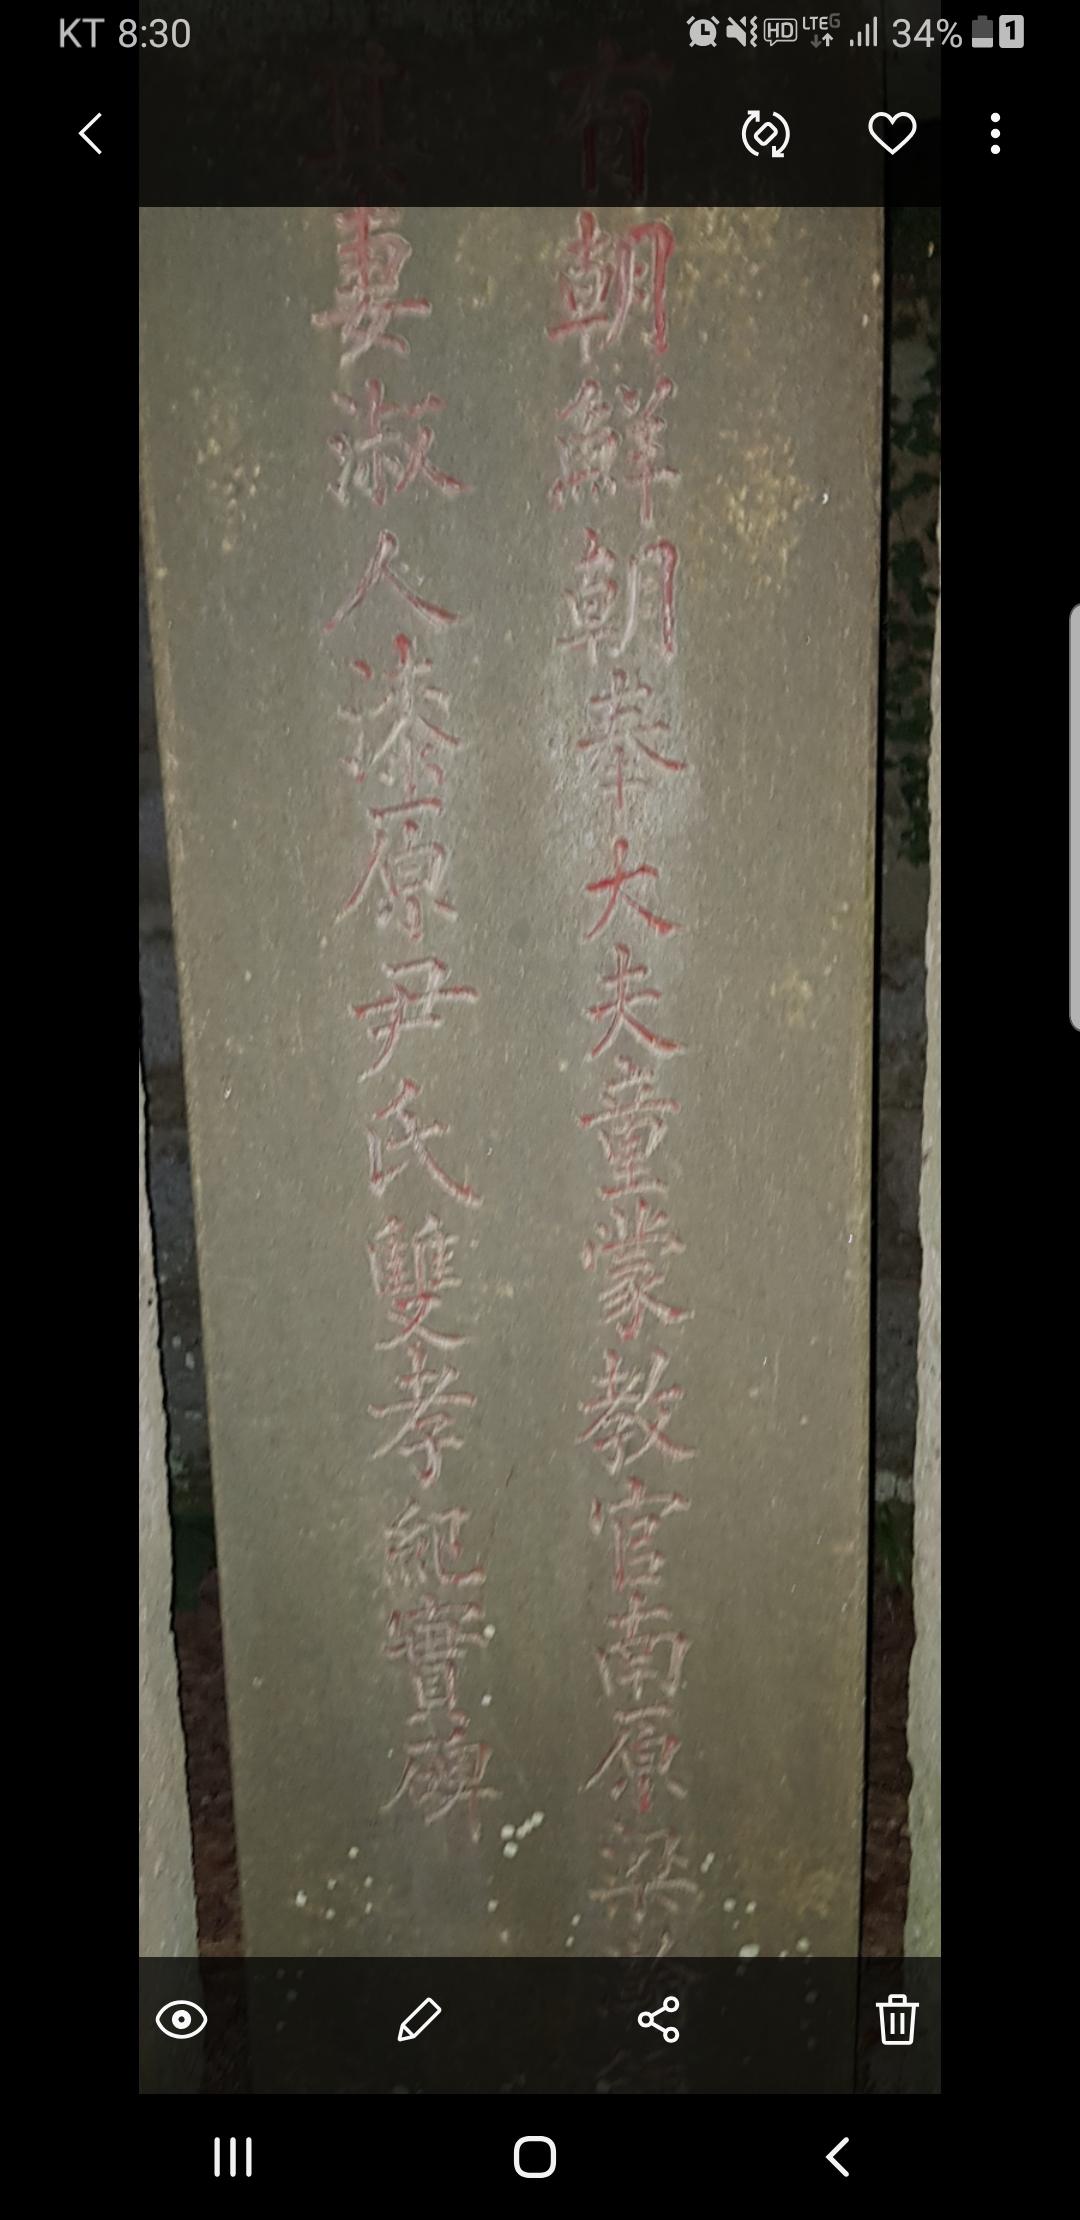 KT 8:30
HD LTE 34% 1
有朝鮮朝奉大夫童蒙教官南原梁
其妻淑人漆原尹氏雙孝紀實碑